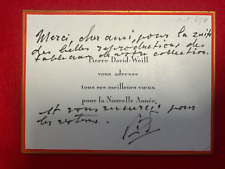 Merci, cher ami, pour la suite
des belles reproductions des
tableaux de votre collection.
Pierre David-Weill
vous adresse
tous ses meilleurs vœux
pour la Nouvelle Année.
et vous remercie pour
les